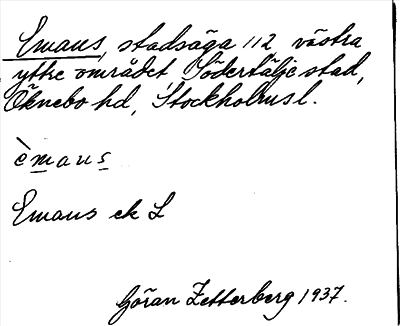 Emaus, stadsäga 112, västra
yttre området, Södertälje stad,
Öknebo hd, Stockholmsl.
èmaus
Emaus ek L
Göran Zetterberg 1937.